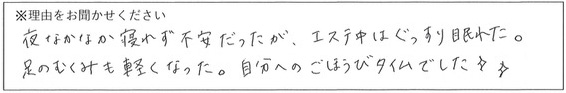 ※理由をお聞かせください
夜なかなか寝れず不安だったが、エステ中はぐっすり眠れた。
足のむくみも軽くなった。自分へのごほうびタイムでした✧✧